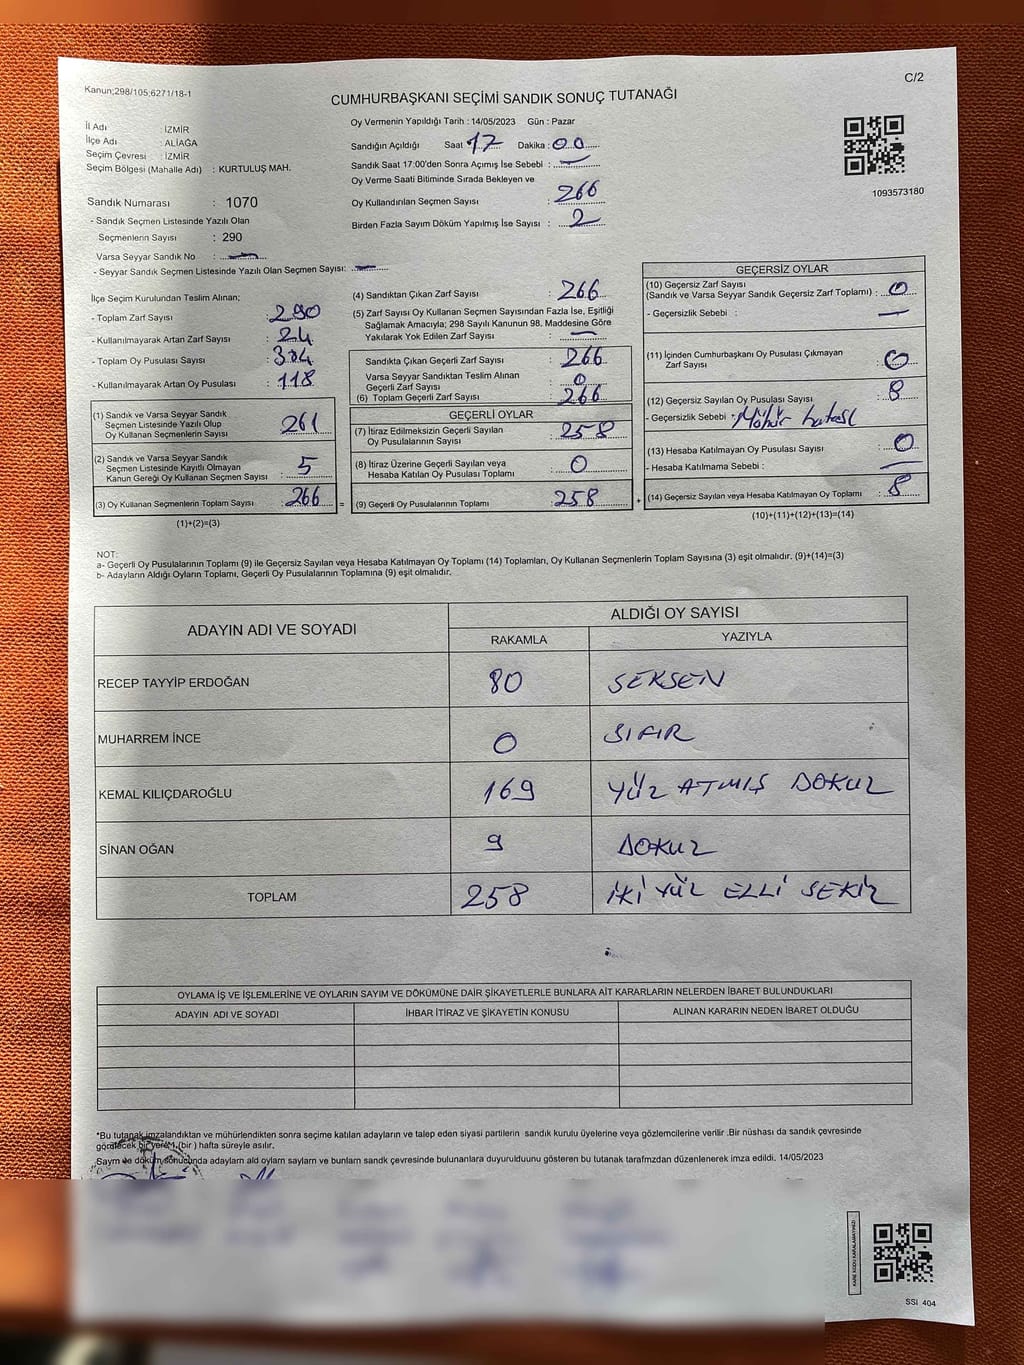 Kanun;298/105;6271/18-1
C/2
CUMHURBAŞKANI SEÇİMİ SANDIK SONUÇ TUTANAĞI
İl Adı : İZMİR
İlçe Adı : ALİAĞA
Seçim Çevresi : İZMİR
Seçim Bölgesi (Mahalle Adı) : KURTULUŞ MAH.
Oy Vermenin Yapıldığı Tarih : 14/05/2023 Gün : Pazar
Sandığın Açıldığı Saat 17 Dakika : 00
Sandık Saat 17:00'den Sonra Açımış İse Sebebi : —
Oy Verme Saati Bitiminde Sırada Bekleyen ve
Oy Kullandırılan Seçmen Sayısı : 266
Birden Fazla Sayım Döküm Yapılmış İse Sayısı : 2
1093573180
Sandık Numarası : 1070
- Sandık Seçmen Listesinde Yazılı Olan
Seçmenlerin Sayısı : 290
Varsa Seyyar Sandık No : —
- Seyyar Sandık Seçmen Listesinde Yazılı Olan Seçmen Sayısı: —
İlçe Seçim Kurulundan Teslim Alınan;
- Toplam Zarf Sayısı : 290
- Kullanılmayarak Artan Zarf Sayısı : 24
- Toplam Oy Pusulası Sayısı :
- Kullanılmayarak Artan Oy Pusulası : 118
(1) Sandık ve Varsa Seyyar Sandık
Seçmen Listesinde Yazılı Olup
Oy Kullanan Seçmenlerin Sayısı : 261
(2) Sandık ve Varsa Seyyar Sandık
Seçmen Listesinde Kayıtlı Olmayan
Kanun Gereği Oy Kullanan Seçmen Sayısı : 5
(3) Oy Kullanan Seçmenlerin Toplam Sayısı : 266 =
(1)+(2)=(3)
(4) Sandıktan Çıkan Zarf Sayısı : 266
(5) Zarf Sayısı Oy Kullanan Seçmen Sayısından Fazla İse, Eşitliği
Sağlamak Amacıyla; 298 Sayılı Kanunun 98. Maddesine Göre
Yakılarak Yok Edilen Zarf Sayısı : —
Sandıkta Çıkan Geçerli Zarf Sayısı : 266
Varsa Seyyar Sandıktan Teslim Alınan
Geçerli Zarf Sayısı : 0
(6) Toplam Geçerli Zarf Sayısı : 266
GEÇERLİ OYLAR
(7) İtiraz Edilmeksizin Geçerli Sayılan
Oy Pusulalarının Sayısı : 258
(8) İtiraz Üzerine Geçerli Sayılan veya
Hesaba Katılan Oy Pusulası Toplamı : 0
(9) Geçerli Oy Pusulalarının Toplamı : 258 +
GEÇERSİZ OYLAR
(10) Geçersiz Zarf Sayısı
(Sandık ve Varsa Seyyar Sandık Geçersiz Zarf Toplamı) : 0
- Geçersizlik Sebebi : —
(11) İçinden Cumhurbaşkanı Oy Pusulası Çıkmayan
Zarf Sayısı : 0
(12) Geçersiz Sayılan Oy Pusulası Sayısı : 8
- Geçersizlik Sebebi : Mühür hatası
(13) Hesaba Katılmayan Oy Pusulası Sayısı : 0
- Hesaba Katılmama Sebebi : —
(14) Geçersiz Sayılan veya Hesaba Katılmayan Oy Toplamı : 8
(10)+(11)+(12)+(13)=(14)
NOT:
a- Geçerli Oy Pusulalarının Toplamı (9) ile Geçersiz Sayılan veya Hesaba Katılmayan Oy Toplamı (14) Toplamları, Oy Kullanan Seçmenlerin Toplam Sayısına (3) eşit olmalıdır. (9)+(14)=(3)
b- Adayların Aldığı Oyların Toplamı, Geçerli Oy Pusulalarının Toplamına (9) eşit olmalıdır.
ADAYIN ADI VE SOYADI
ALDIĞI OY SAYISI
RAKAMLA YAZIYLA
RECEP TAYYİP ERDOĞAN 80 SEKSEN
MUHARREM İNCE 0 SIFIR
KEMAL KILIÇDAROĞLU 169 YÜZ ATMIŞ DOKUZ
SİNAN OĞAN 9 DOKUZ
TOPLAM 258 İKİ YÜZ ELLİ SEKİZ
OYLAMA İŞ VE İŞLEMLERİNE VE OYLARIN SAYIM VE DÖKÜMÜNE DAİR ŞİKAYETLERLE BUNLARA AİT KARARLARIN NELERDEN İBARET BULUNDUKLARI
ADAYIN ADI VE SOYADI
İHBAR İTİRAZ VE ŞİKAYETİN KONUSU
ALINAN KARARIN NEDEN İBARET OLDUĞU
*Bu tutanak imzalandıktan ve mühürlendikten sonra seçime katılan adayların ve talep eden siyasi partilerin sandık kurulu üyelerine veya gözlemcilerine verilir .Bir nüshası da sandık çevresinde
görülecek bir yere 1 (bir ) hafta süreyle asılır.
Sayım ve döküm sonucunda adayların ald oyların sayları ve bunların sandk çevresinde bulunanlara duyurulduunu gösteren bu tutanak tarafmzdan düzenlenerek imza edildi. 14/05/2023
KARE KODU KARALAMAYINIZ!
SSI 404